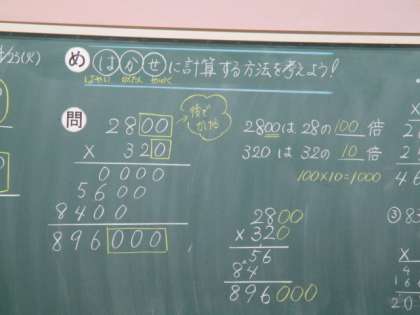 /25(火)
め はかせに計算する方法を考えよう!
はやい かんたん せいかく
問
2800
× 320
0000
5600
8400
896000
後で
かける
2800は28の100倍
320は32の10倍
100×10=1000
2800
×320
56
84
896000
③83